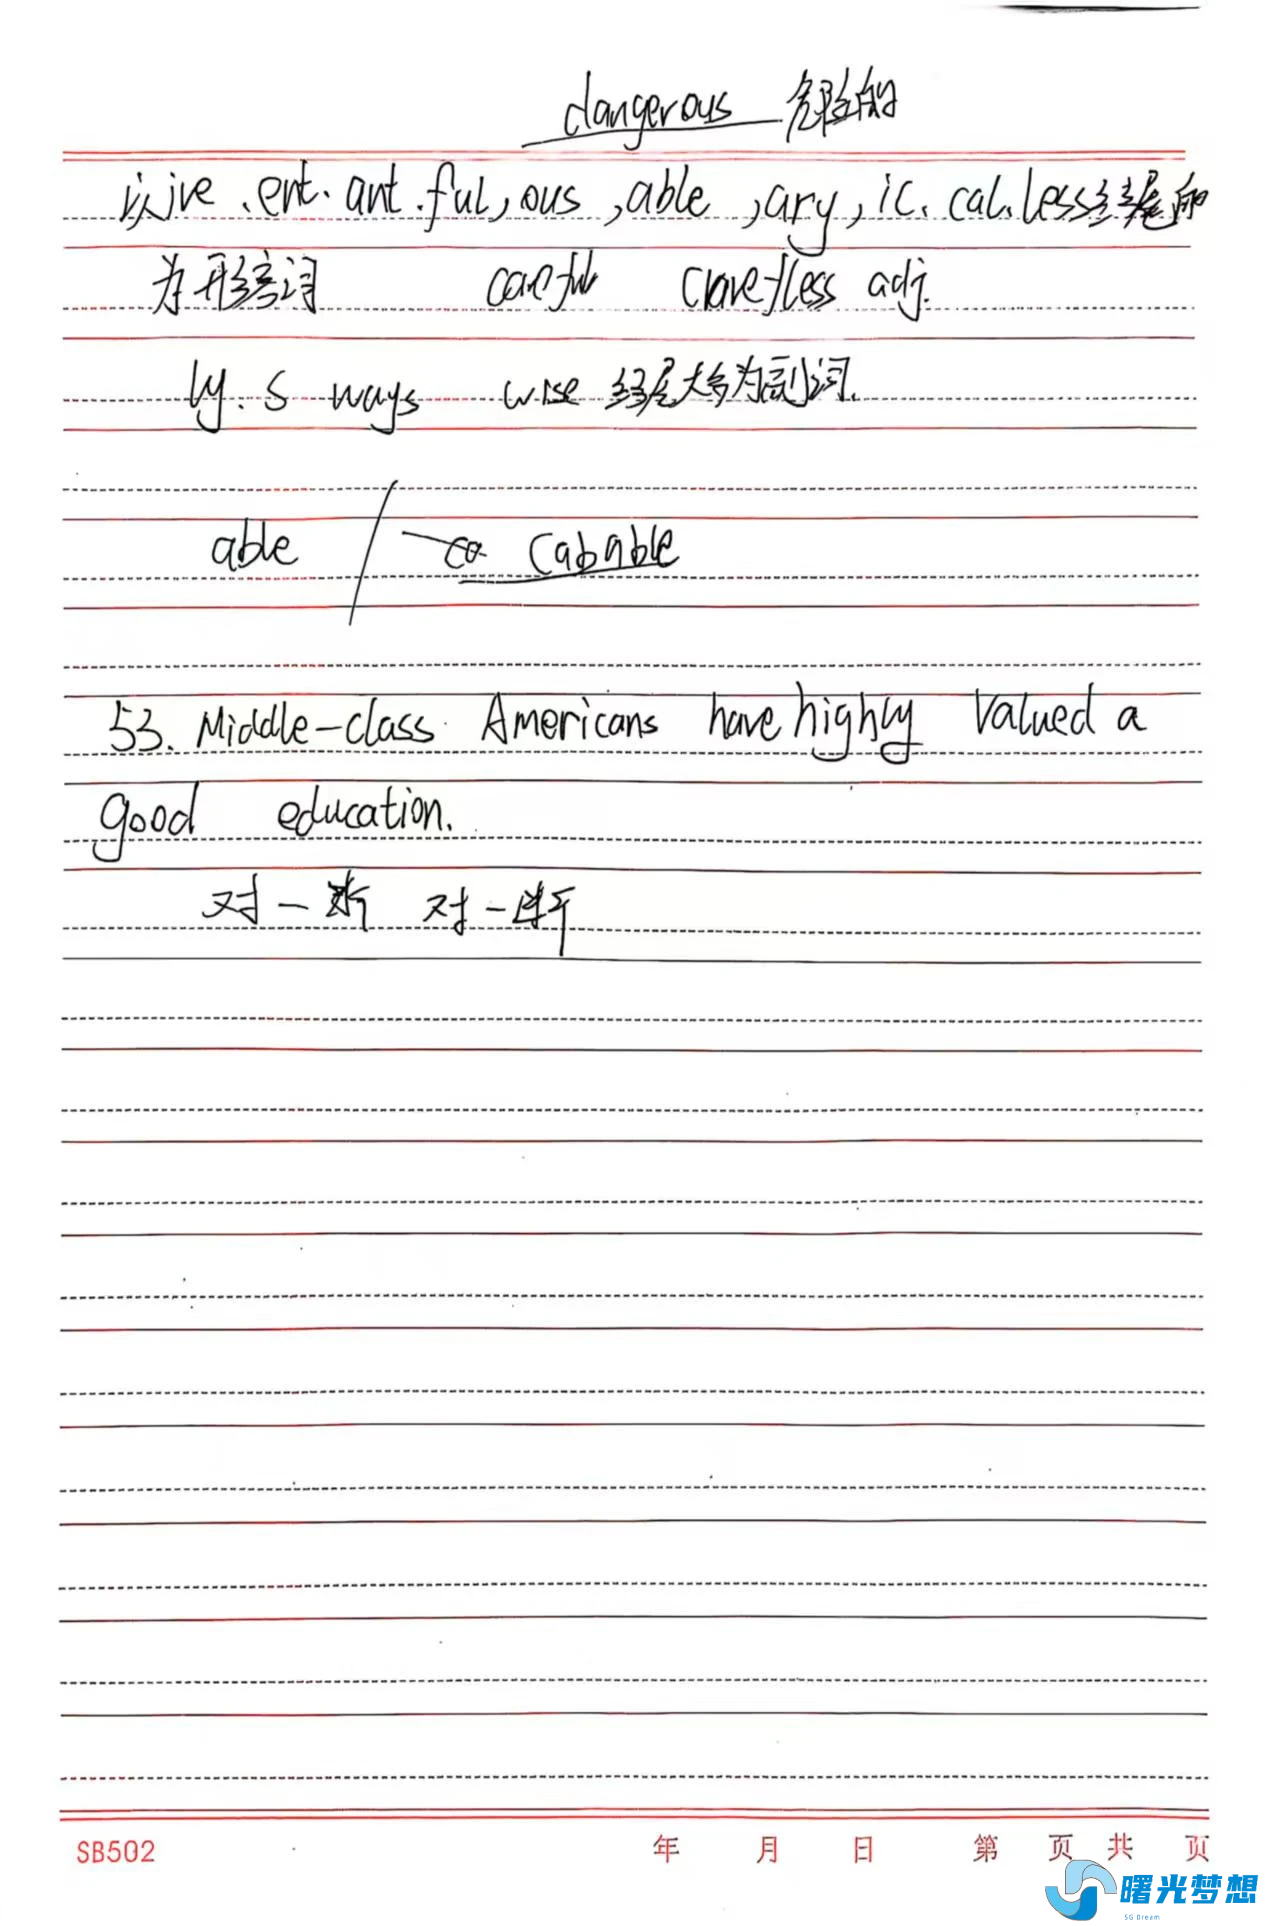 dangerous 危险的
以ive.ent.ant.ful,ous,able,ary,ic.cal.less结尾的
为形容词 careful adj.
ly.s ways wise 结尾大多为副词.
able / Cabable
53. Middle-class Americans have highly valued a
good education.
对一断 对一断
SB502 年 月 日 第 页 共 页
曙光梦想
SG Dream